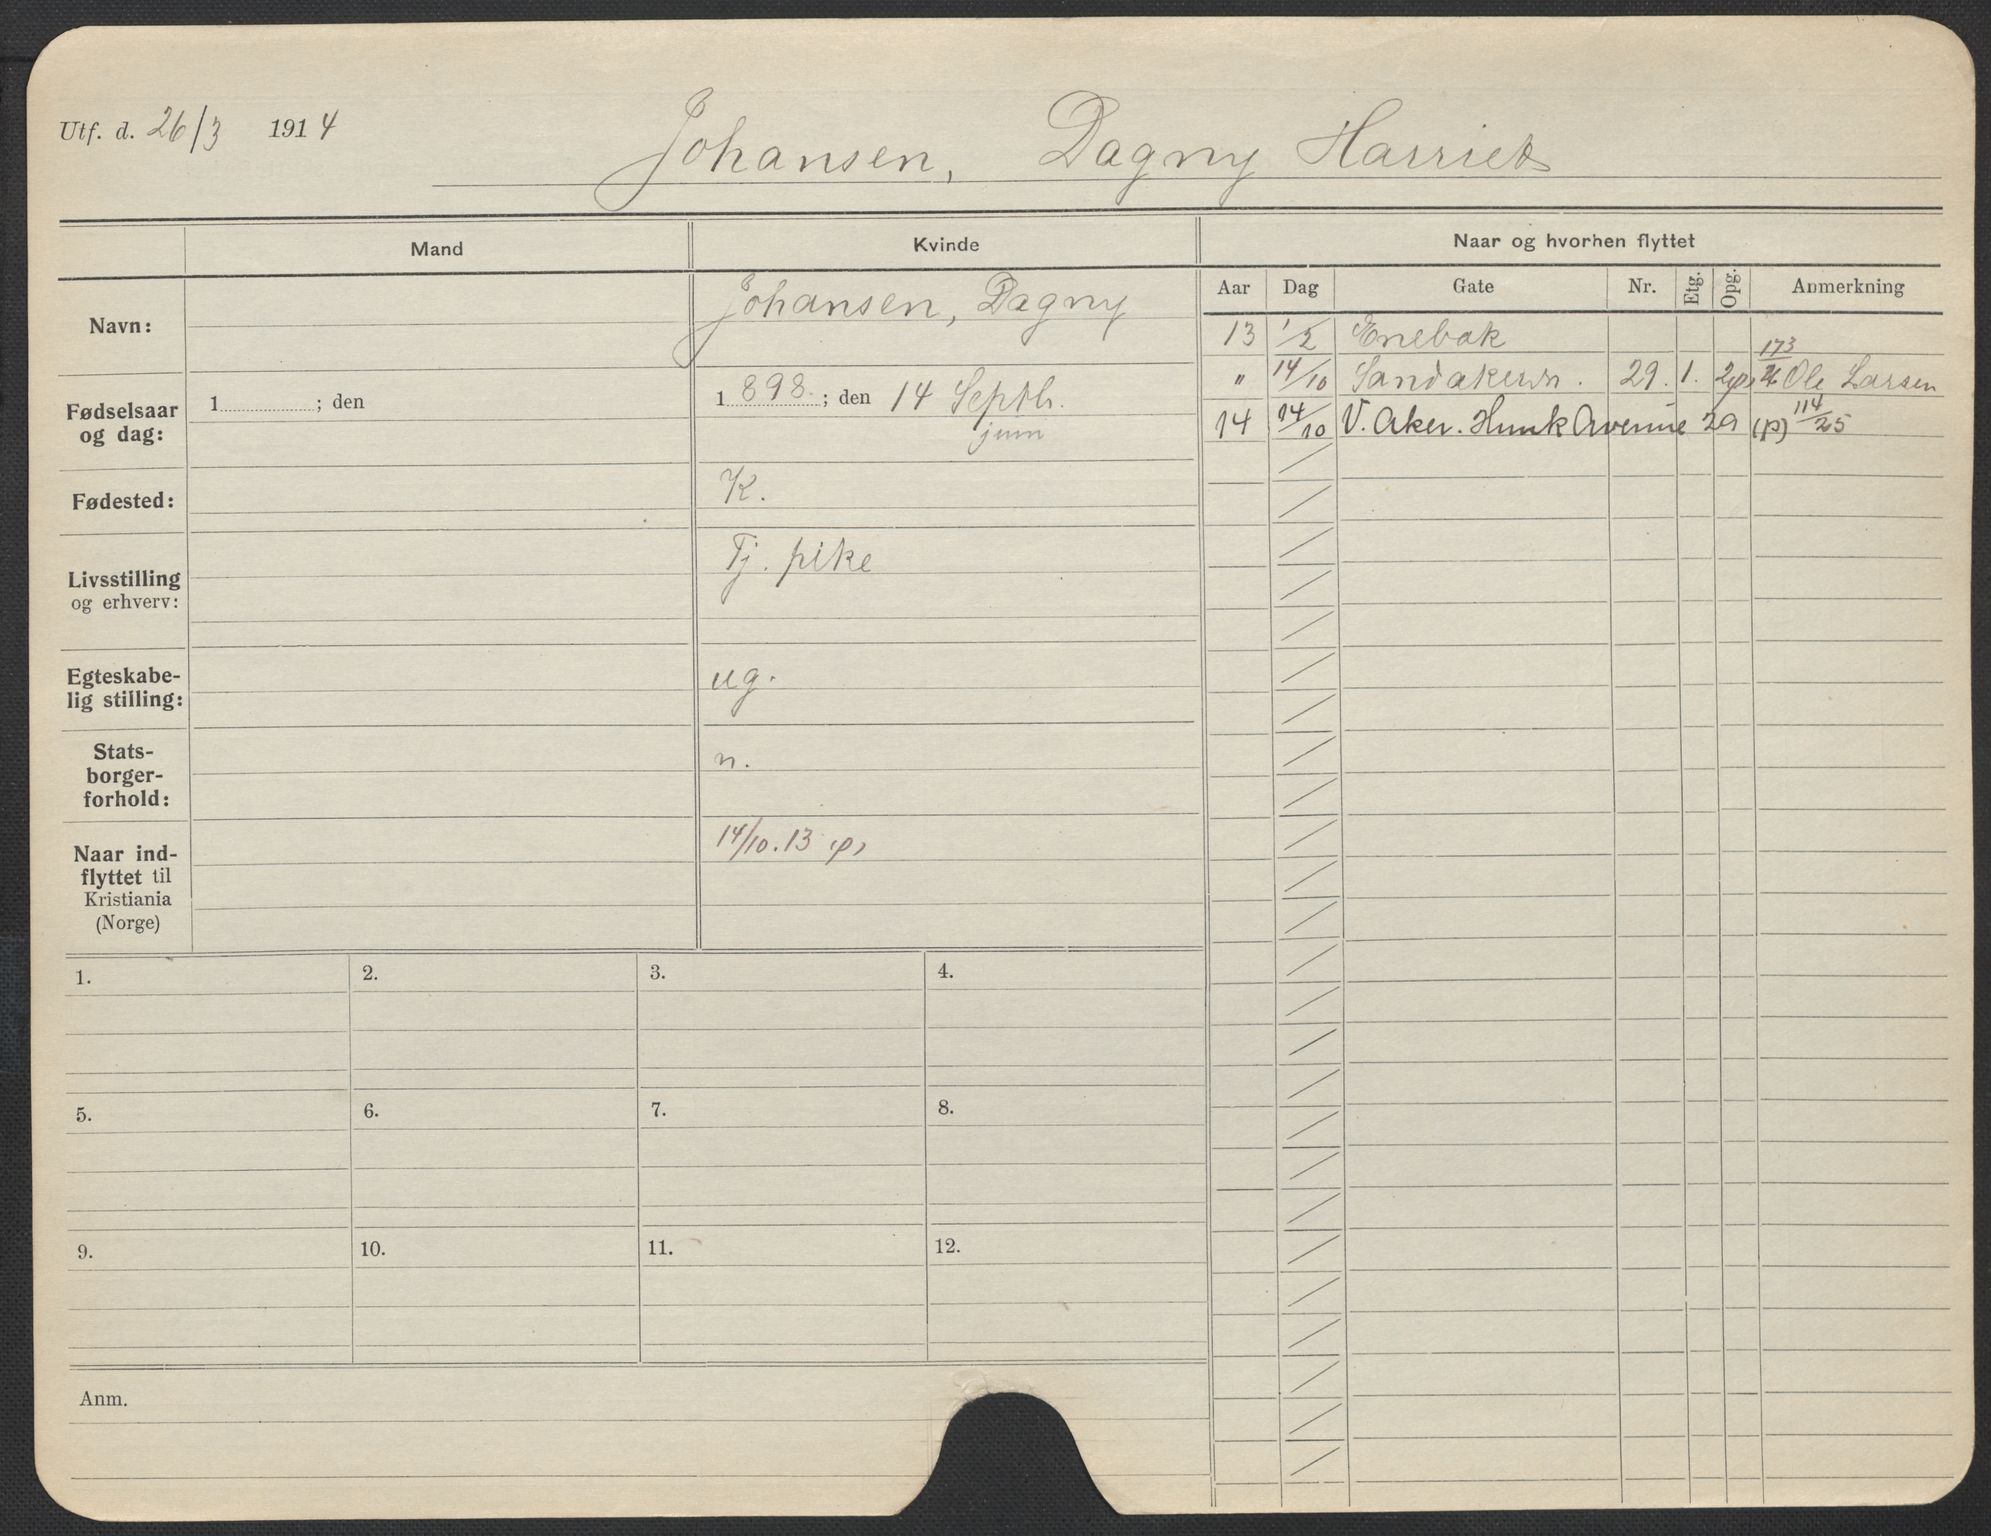 Utf. d. 26/3 1914
Johansen, Dagny Harriet
Mand
Kvinde
Naar og hvorhen flyttet
Navn:
Johansen, Dagny
Fødselsaar
og dag:
1 ; den
1898. ; den 14 Septb.
juni
Fødested:
K.
Livsstilling
og erhverv:
Tj. pike
Egteskabe-
lig stilling:
ug.
Stats-
borger-
forhold:
n.
Naar ind-
flyttet til
Kristiania
(Norge)
14/10.13 (p)
Aar Dag Gate Nr. Etg. Opg. Anmerkning
13 1/2 Enebak
" 14/10 Sandakervn. 29. 1. Ole Larsen
173
14 14/10 V. Aker. Avenue 29 (p) 114/25
1. 2. 3. 4.
5. 6. 7. 8.
9. 10. 11. 12.
Anm.